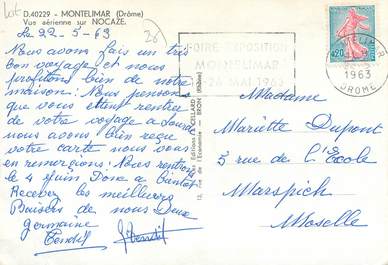 Lot
D.40229 - MONTELIMAR (Drôme)
Vue aérienne sur NOCAZE.
Le 22-5-63
Nous avons fais un très
bon voyage et nous
profitons bien de notre
maison. Nous pensons
que vous êtent rentrer
de votre voyage a Lourde
nous avons bien reçue
votre carte nous vous
en remerçions. Nous rentrons
le 4 Juin Donc a Bientot
Recever les meilleurs
Baisers de nous Deux
germaine
Tendil
Tendil
28
FOIRE EXPOSITION
MONTELIMAR
-26 MAI 1963
MONTELIMAR
22-5
1963
DROME
0,20
Editions CELLARD
12, rue de l'Economie - BRON (Rhône)
Madame
Mariette Dupont
5 rue de l'École
Marspich
Moselle